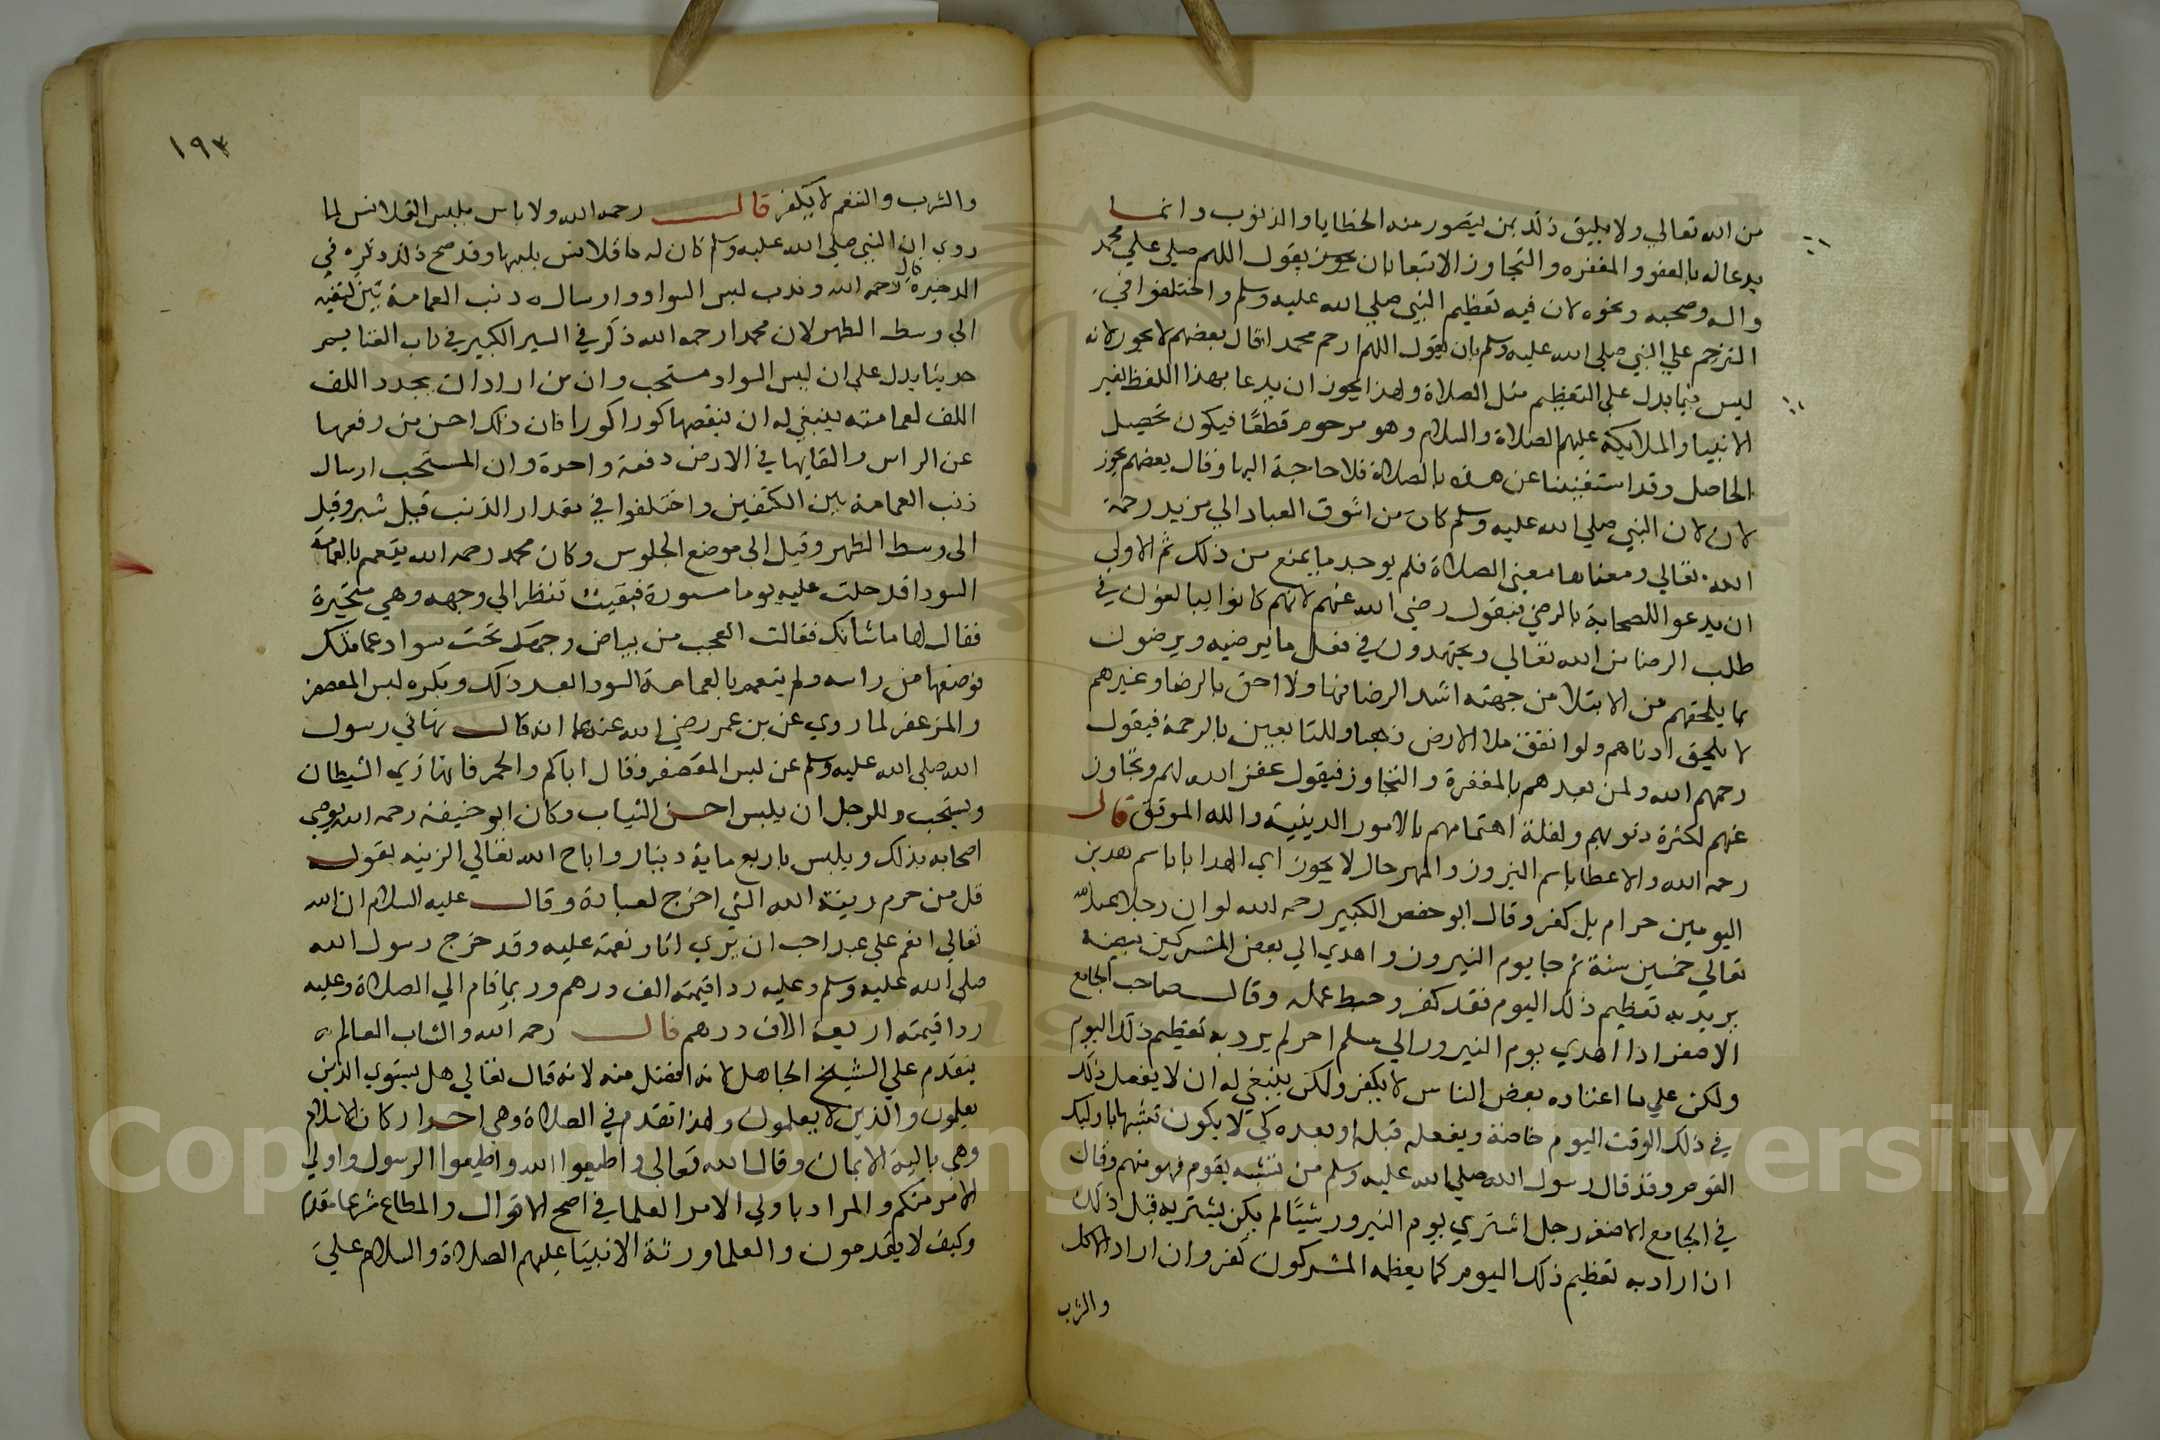 من الله تعالي ولا يليق ذلك بمن يتصور منه الخطايا والذنوب وانما
يدعا له بالعفو والمغفره والتجاوز الا تبعا بان يقول اللهم صلي علي محمد
واله وصحبه ونحوه لان فيه تعظيم النبي صلي الله عليه وسلم واختلفوا في
الترحم علي النبي صلي الله عليه وسلم بان يقول اللهم ارحم محمدا قال بعضهم لا يجوز لانه
ليس فيما يدل علي التعظيم مثل الصلاة ولهذا يجوز ان يدعا بهذا اللفظ لغير
الانبيا والملايكة عليهم الصلاة والسلام وهو مرحوم قطعًا فيكون تحصيل
الحاصل وقد استغنينا عن هذه بالصلاة فلا حاجة اليها وقال بعضهم يجوز
لان النبي صلي الله عليه وسلم كان من اشوق العباد الي مزيد رحمة
الله تعالي ومعناها معنى الصلاة فلم يوجد ما يمنع من ذلك ثم الاولي
ان يدعوا للصحابة بالرضي فيقول رضي الله عنهم لانهم كانوا يبالغون في
طلب الرضا من الله تعالي ويجتهدون في فعل ما يرضيه ويرضون
بما يلحقهم من الابتلا من جهته اشد الرضا فهاولا احق بالرضا وغيرهم
لا يلحق ادناهم ولو انفق ملا الارض ذهبا وللتابعين بالرحمة فيقول
رحمهم الله ولمن بعدهم بالمغفرة والتجاوز فيقول غفر الله لهم وتجاوز
عنهم لكثرة ذنوبهم ولقلة اهتمامهم بالامور الدينية والله الموفق قال
رحمه الله والاعطا باسم النيروز والمهرجان لا يجوز اي الهدايا باسم هذين
اليومين حرام بل كفر وقال ابو حفص الكبير رحمه الله لو ان رجلا عبد الله
تعالي خمسين سنة ثم جا يوم النيروز واهدي الي بعض المشركين بيضة
يريد به تعظيم ذلك اليوم فقد كفر وحبط عمله وقال صاحب الجامع
الاصغر اذا اهدي يوم النيروز الي مسلم اخر لم يرد به تعظيم ذلك اليوم
ولكن علي ما اعتاده بعض الناس لا يكفر ولكن ينبغي له ان لا يفعل ذلك
في ذلك الوقت اليوم خاصة ويفعله قبله او بعده كي لا يكون تشبها باوليك
القوم وقد قال رسول الله صلي الله عليه وسلم من تشبه بقوم فهو منهم وقال
في الجامع الاصغر رجل اشتري يوم النيروز شيًا لم يكن يشتريه قبل ذلك
ان اراد به تعظيم ذلك اليوم كما يعظمه المشركون كفر وان اراد الاكل
والشرب
١٩٣
والشرب والتنعم لا يكفر قال رحمه الله ولا باس بلبس القلانس لما
روي ان النبي صلي الله عليه وسلم كان له قلانس يلبسها وقد صح ذلك ذكره في
الذخيرة قال رحمه الله وندب لبس السواد وارسال ذنب العمامة بين كتفيه
الي وسط الظهر لان محمدا رحمه الله ذكر في السير الكبير في باب الغنايم
حديثا يدل علي ان لبس السواد مستحب وان من اراد ان يجدد اللف
اللف لعمامته ينبغي له ان ينقضها كورا كورا فان ذلك احسن من رفعها
عن الراس والقايها في الارض دفعة واحدة وان المستحب ارسال
ذنب العمامة بين الكتفين واختلفوا في مقدار الذنب قيل شبر وقيل
الى وسط الظهر وقيل الى موضع الجلوس وكان محمد رحمه الله يتعمم بالعمامة
السودا فدخلت عليه يوما مستورة فبقيت تنظر الي وجهه وهي متحيرة
فقال لها ما شانك فقالت العجب من بياض وجهك تحت سواد عمامتك
فوضعها من راسه ولم يتعمم بالعمامة السودا بعد ذلك ويكره لبس المعصفر
والمزعفر لما روي عن بن عمر رضي الله عنهما انه قال نهاني رسول
الله صلي الله عليه وسلم عن لبس المعصفر وقال اياكم والحمر فانها زي الشيطان
ويستحب وللرجل ان يلبس احسن الثياب وكان ابو حنيفة رحمه الله يوصي
اصحابه بذلك ويلبس باربع ماية دينار واباح الله تعالي الزينه بقوله
قل من حرم زينة الله التي اخرج لعباده وقال عليه السلام ان الله
تعالي انعم علي عبد احب ان يري اثار نعمته عليه وقد خرج رسول الله
صلي الله عليه وسلم وعليه ردا قيمته الف درهم وربما قام الي الصلاة وعليه
ردا قيمته اربعة الاف درهم قال رحمه الله والشاب العالم
يتقدم علي الشيخ الجاهل لانه افضل منه لانه قال تعالي هل يستوي الذين
يعلمون والذين لا يعلمون ولهذا تقدم في الصلاة وهي احد اركان الاسلام
وهي تالية الايمان وقال الله تعالى واطيعوا الله واطيعوا الرسول واولي
الامر منكم والمراد باولي الامر العلما في اصح الاقوال والمطاع شرعا مقدم
وكيف لا يقدمون والعلما ورثة الانبيا عليهم الصلاة والسلام علي
Copyright © King Saud University